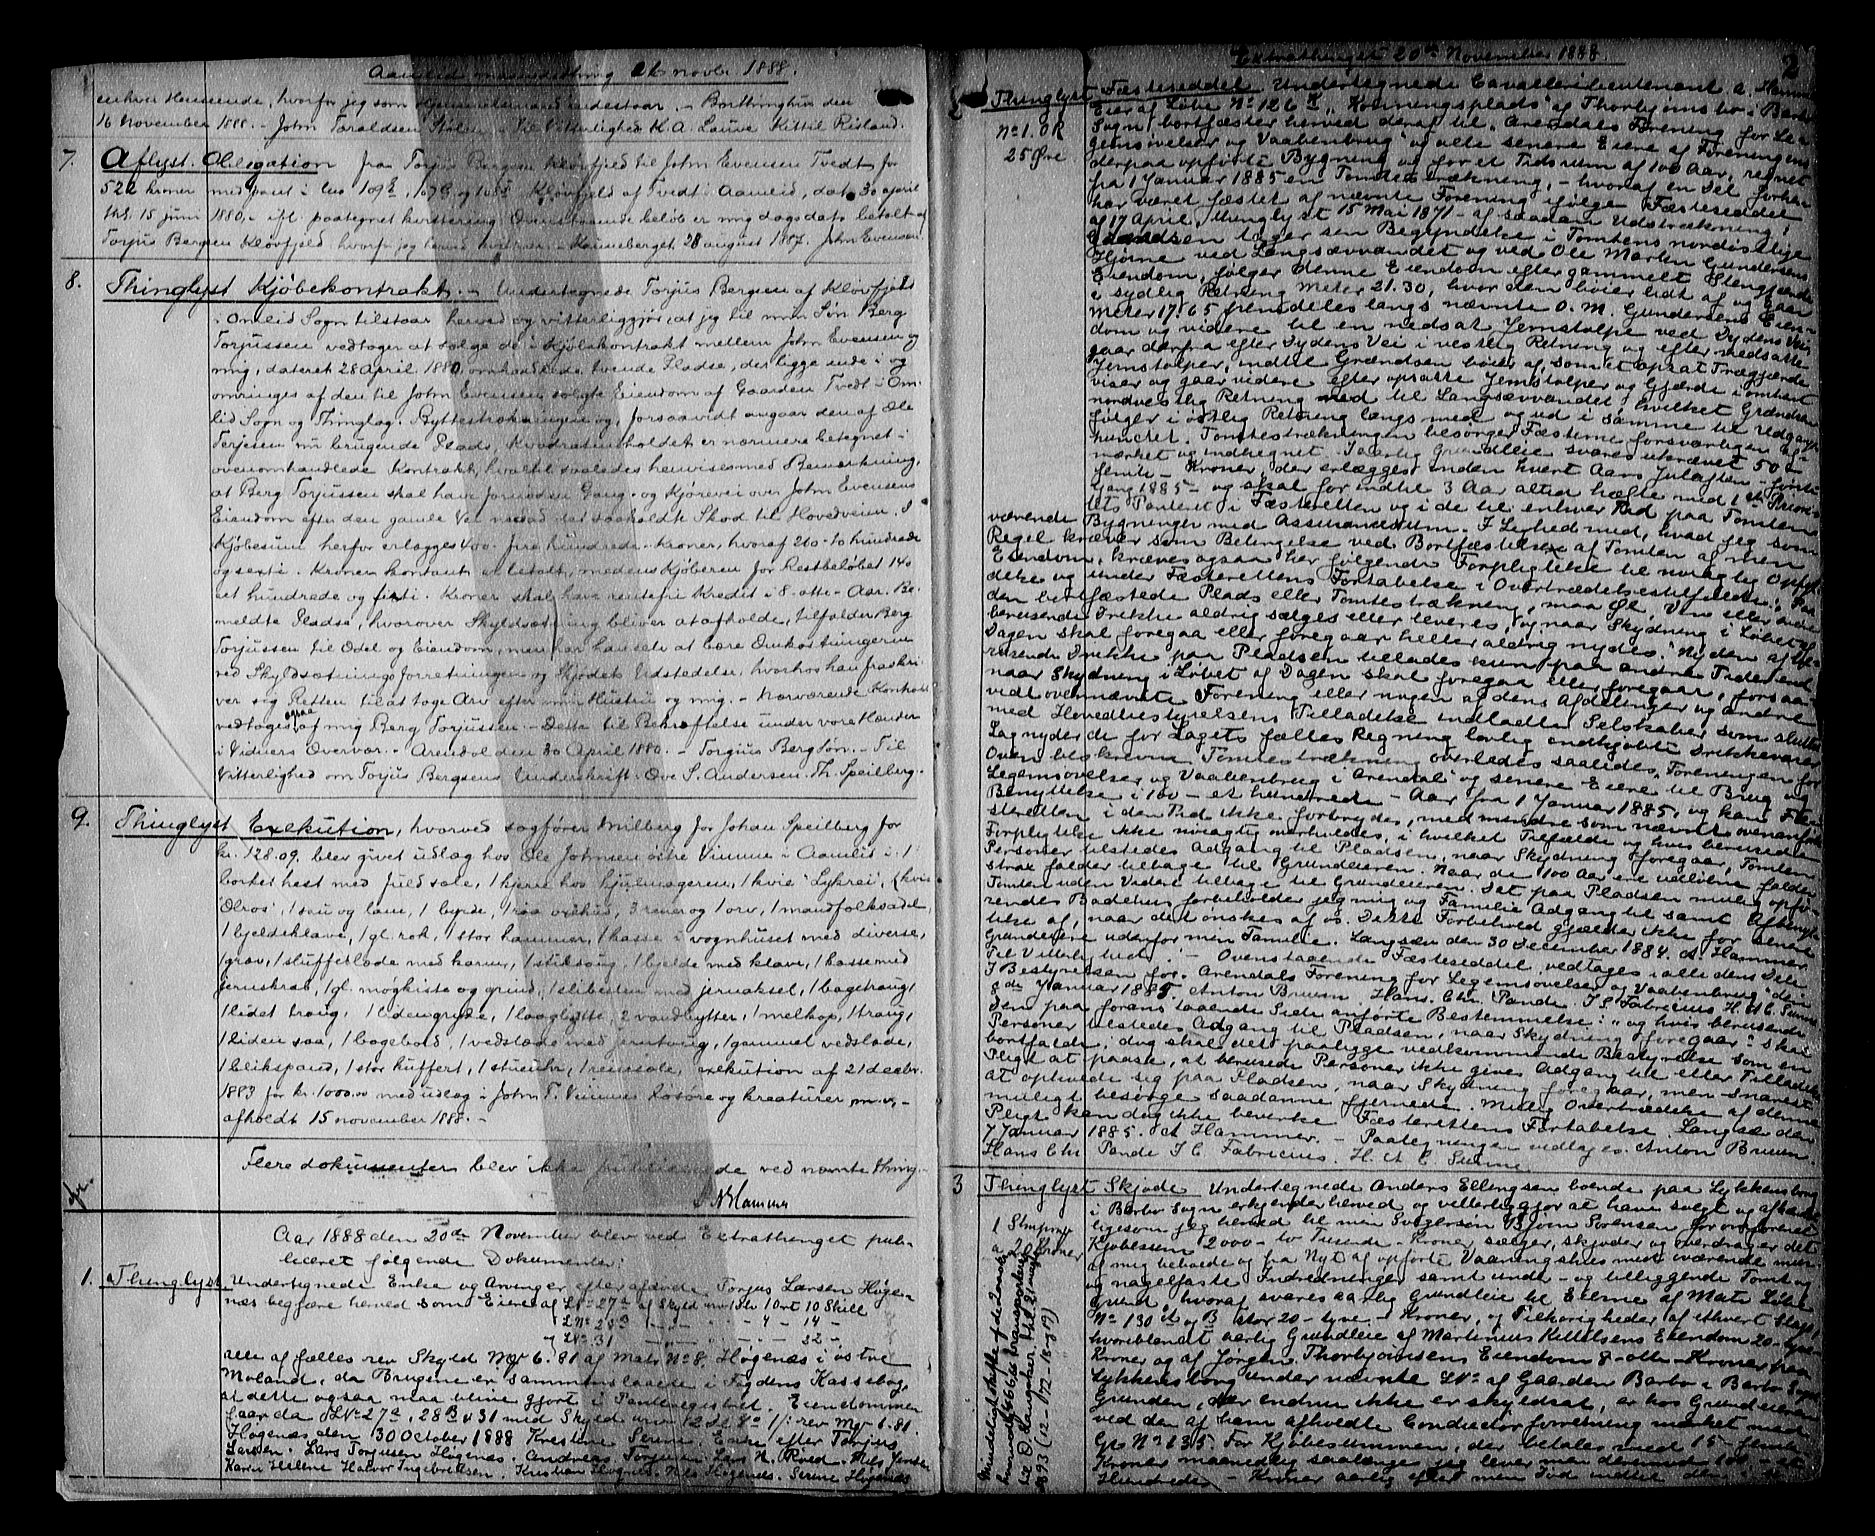 1
Aamlid maanedsthing 16 novbr 1888.
enhver Henseende, hvorfor jeg som Hjemmelsmand indestaar. – Borthinghus den
16 November 1888. – John Taraldsen Til Vitterlighed K. A. Lauve Kittil Risland.
7. Aflyst. Obligation fra Torjus Bergsen Kløvfjeld til John Evensen Tvedt for
522 kroner med pant i Kløvfjeld af Tvedt i Aamlid, dat. 30 april
thl. 15 juni 1880, – ifl. paategnet kvittering: Ovenstaaende beløb er mig dags dato betalt af
Torjus Bergsen Kløvfjeld, hvorfor jeg herved kvitterer. – 28 august 1887. John Evensen
8. Thinglyst Kjøbekontrakt. – Undertegnede Torjus Bergsen af Kløvfjeld
i Omlid Sogn tilstaar herved og vitterliggjør, at jeg til min Søn Berg
Torjussen vedtager at sælge de i Kjøbskontrakt mellem John Evensen og
mig, dateret 28 April 1880, omhandlede tvende Pladse, der ligge inde i og
omringes af den til John Evensen solgte Eiendom af Gaarden Tvedt i Om-
lid Sogn og Thinglag. Byttestrækningen og, forsaavidt angaar den af Ole
Terjesen nu brugende Plads, Kvadratindholdet er nærmere betegnet i
ovenomhandlede Kontrakt, hvortil saaledes henvises med Bemærkning,
at Berg Torjussen skal have fornøden Gang- og Kjørevei over John Evensens
Eiendom efter den gamle Vei nedad det saakaldte Skod til Hovedveien. I
Kjøbesum herfor erlægges 400 – fire hundrede – Kroner, hvoraf 260 – to hundrede
og sexti – Kroner kontant er betalt, medens Kjøberen for Restbeløbet 140
et hundrede og firti – Kroner skal have rentefri Kredit i 8 – otte – Aar. Be-
meldte Pladse, hvorover Skyldsætning bliver at afholde, tilfalder Berg
Torjussen til Odel og Eiendom, men har han selv at bære Omkostningerne
ved Skyldsætningsforretningen og Skjødets Udstedelse, hvorhos han fraskri-
ver sig Retten til at tage Arv efter min Hustru og mig. – Nærværende Kontrakt
vedtages ogsaa af mig Berg Torjussen – Dette til Bekræftelse under vore Hænder
i Vidners Overvær. – Arendal den 30 April 1880. – Torgius Berg Søn. – Til
Vitterlighed om Torjus Bergsens Underskrift. Ove S. Andersen. Th. Speilberg.
9. Thinglyst Exekution, hvorved sagfører Milberg for Johan Speilberg for
kr. 128.09. blev givet udlag hos Ole Johnsen østre Vimme i Aamlid i: 1
borket hest med fuld sæle, 1 kjerre hos hjulmageren, 1 kvie "Lykrei", 1 kvie
"Olros", 1 sau og lam, 1 byrde, 1 raa oxehud, 3 river og 1 orv, 1 mandfolksadel,
1 bjeldeklave, 1 gl. rok, 1 stor hammer, 1 kasse i vognhuset med diverse,
1 grav, 1 sluffeslæde med karm, 1 stiksaug, 1 bjelde med klave, 1 kasse med
jernskrab, 1 gl. møgkiste og grind, 1 slibesten med jernaksel, 1 bagetraug,
1 lidet traug, 1 liden gryde, 1 2 vandbytter, 1 melkop, 1 traug,
1 liden saa, 1 bagebord, 1 vedslæde med jerntving, 1 gammel vedslæde,
1 blikspand, 1 stor kuffert, 1 stueuhr, 1 exekution af 21 decbr.
1883 for kr. 1000.00 med udlag i John T. Vimmes løsøre og kreaturer m. v. –
afholdt 15 november 1888. –
Flere dokumenter blev ikke publicerede ved nævnte thing. –
Hammer
Aar 1888 den 20de November blev ved Extrathinget pub-
liceret følgende Dokumenter:
1. Thinglyst. Undertegnede Enke og Arvinger efter afdøde Torjus Larsen Høge-
næs begjære herved som Eiere af LNo 27a af Skyld 1 Ort 10 Skill
LNo 28B " – " – 4 – 14 –
LNo 31 – – – 22 –
alle af fælles rev Skyld Mrk 6.81 af Matr No 8, Høgenæs i østre
Moland, da Brugene er sammenslaaede i Fogdens Kassebog,
at dette ogsaa maa blive gjort i Pantregistret. Eiendommen
faar da LNo 27a, 28B & 31 med Skyld rev Mrk 6.81.
Høgenæs den 30 October 1888 Kirstine Serine Enke efter Torjus
Larsen. Lars Torjusen Høgenæs. Andreas Torjusen Lars N. Røed. Nils Jensen
Karen Helene Halvor Ingebretsen. Kristian Høgnes. Nils Høgenes. Serine Høgenæs
Extrathinget 20de November 1888.
2
2 Thinglyst Fæsteseddel Undertegnede Cavallerilieutenant A. Hammer
No 1. OR
25 Øre
Eier af Løbe No 126 "Kokningsplads" af Thorbjørnsbo i Barbo
Sogn, bortfæster herved deraf til "Arendals Forening for Le-
gemsøvelser og Vaabenbrug" og alle senere Eiere af Foreningens
derpaa opførte Bygning og for et Tidsrum af 100 Aar, regnet
fra 1 Januar 1885 en Tomtestrækning, – hvoraf en Del forhen
har været fæstet af nævnte Forening ifølge Fæsteseddel
af 17 April, thinglyst 15 Mai 1871 – af saadan Udstrækning:
Grændsen tager sin Begyndelse i Tomtens nordøstlige
Hjørne ved Langsævvandet og ved Ole Marten Gundersens
Eiendom, følger denne Eiendom efter gammelt Stengjærde
i sydlig Retning Meter 21.30, hvor den bøier lidt af og gaar
Meter 17.65 fremdeles langs nævnte O. M. Gundersens Eien-
dom og videre til en nedsat Jernstolpe ved Dydens Vei
gaar derfra efter Dydens Vei i vestlig Retning og efter nedsatte
Jernstolper, indtil Grændsen bøier af, som et opsat Trægjærde
viser og gaar videre efter opsatte Jernstolper og Gjærde i omtrent
nordvestlig Retning ned til Langsævvandet, hvilket Grændsen
følger i østlig Retning langs med og ud i samme til Udgangs-
punctet. Tomtestrækningen besørger Fæsterne forsvarligen af-
mærket og indhegnet. I aarlig Grundleie svares ukrævet 50 –
femti – Kroner, der erlægges inden hvert Aars Juleaften – første
Gang 1885 – og skal for indtil 3 Aar altid hæfte med 1ste Priori-
tets Panteret i Fæsteretten og i de til enhver Tid paa Tomten
værende Bygninger med Assurancesum. I Lighed med, hvad jeg som
Regel kræver som Betingelse ved Bortfæstelse af Tomter af min
Eiendom, kræves ogsaa her følgende Forpligtelse til nøiagtig Opfyl-
delse og under Fæsterettens Fortabelse i Overtrædelsestilfælde: "Paa
den bortfæstede Plads eller Tomtestrækning maa Øl, Vin eller andre
berusende Drikke aldrig sælges eller leveres, og naar Skydning i Løbet af
Dagen skal foregaa eller foregaar heller aldrig nydes." Nyden af be-
rusende Drikke paa Pladsen tillades kun paa andre Tider end
naar Skydning i Løbet af Dagen skal foregaa eller foregaar, forsaa-
vidt ovennævnte Forening eller nogen af dens Afdelinger og andre
med Hovedbestyrelsens Tilladelse indladte Selskaber som sluttet
Lag nyder de for Lagets fælles Regning lovlig indkjøbte Drikkevarer.
Oven beskrevne Tomtestrækning overlades saaledes "Foreningen for
Legemsøvelser og Vaabenbrug i Arendal" og senere Eiere til Brug og
Benyttelse i 100 – et hundrede – Aar fra 1 Januar 1885, og kan Fæ-
steretten i den Tid ikke forbrydes, med mindre som nævnt ovenanførte
Forpligtelse ikke nøiagtig overholdes, i hvilket Tilfælde og hvis berusede
Personer tilstedes Adgang til Pladsen, naar Skydning foregaar, Tomten
strax falder tilbage til Grundeieren. Naar de 100 Aar ere udløbne falder
Tomten uden Videre tilbage til Grundeieren. Det paa Pladsen mulig opfø-
rendes Badehus forbeholder jeg mig og Familie Adgang til samt Afbenyt-
telse af, naar det ønskes af os. Dette Forbehold gjælder ikke for senere
Grundeiere udenfor min Familie. Langsæ den 30 December 1884. A. Hammer
Til Vitterlighed: – Ovenstaaende Fæsteseddel vedtages i alle dens Dele
I Bestyrelsen for "Arendals Forening for Legemsøvelser og Vaabenbrug" den
8de Januar 1885. Anton Bruun. Hans Chr. Pande I. C. Fabricius H. A. C. Sunne
Den paa foranstaaende Side anførte Bestemmelse: "og hvis berusende
Personer tilstedes Adgang til Pladsen, naar Skydning foregaar" skal
bortfalde; dog skal det paaligge vedkommende Bestyrelse som en
Pligt at paase, at berusede Personer ikke gives Adgang til eller Tilladelse
at opholde sig paa Pladsen, naar Skydning foregaar, men snarest
muligt besørge saadanne fjernede. Mulig Overtrædelse af denne
Pligt kan dog ikke bevirke Fæsterettens Fortabelse. Langsæ den
7 Januar 1885. A. Hammer. – Paategningen vedtages. Anton Bruun.
Hans Chr Pande I. C. Fabricius. H. A. C. Sunne
3 Thinglyst Skjøde Undertegnede Anders Ellingsen boende paa Lykkensborg
i Barbo Sogn erkjender herved og vitterliggjør at have solgt og afhændet
ligesom jeg herved til min Svigersøn Bjørn Sørensen for omforenet
Kjøbesum 2000 – to Tusinde – Kroner sælger, skjøder og overdrager det
af mig beboede og fra Nyt af opførte Vaaningshus med iværende mur-
og nagelfaste Indredninger samt unde- og tilliggende Tomt og
Grund hvoraf svares aarlig Grundleie til Eierne af Matr. Løbe
No 130 A og B stor 20 – tyve – Kroner, og Tilhørigheder af ethvert Slags,
hvoriblandt aarlig Grundleie af Martinius Kittelsens Eiendom 20 – tyve –
Kroner og af Jørgen Thorbjørnsens Eiendom 8 – otte – Kroner paa
Lykkensborg under nævnte LNo af Gaarden Barbo i Barbo Sogn.
Grunden, der endnu ikke er skyldsat, er hos Grundeieren
ved den af ham afholdte Conductørforretning mærket med
Gr No 135. For Kjøbesummen, der betales med 15 – femten
Kroner maanedlig saalænge jeg lever men derimod 100 – et
Hundrede – Kroner aarlig efter min Død indtil den
1 Stmprv
a 2 Kroner